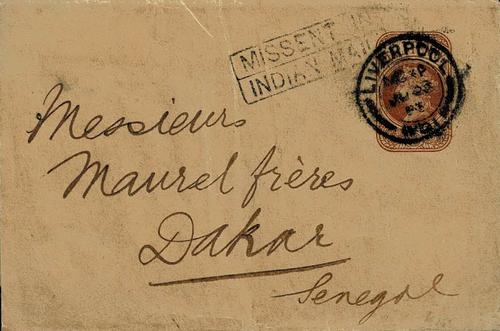 MISSENT IN
INDIAN MAIL
LIVERPOOL
Messieurs
Maurel frères
Dakar
Senegal